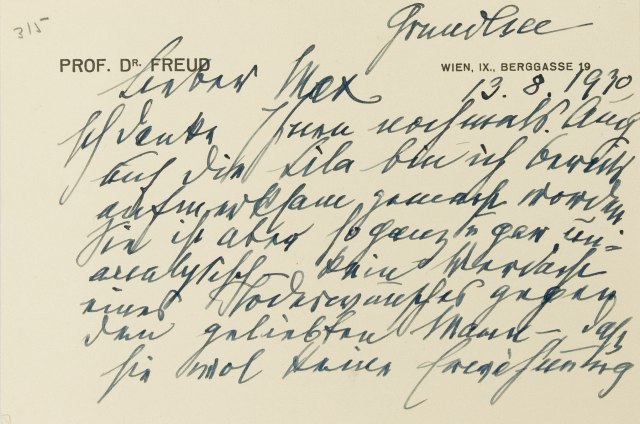 315
Grundlsee
PROF. DR. FREUD
WIEN, IX., BERGGASSE 19
13. 8. 1930
Lieber Max
Ich danke Ihnen nochmals. Auch
auf die Lila bin ich bereits
aufmerksam gemacht worden
Sie ist aber so ganz u gar un-
analytisch kein Verdacht
eines Todeswunsches gegen
den geliebten Mann – daß
sie wol keine Erwähnung